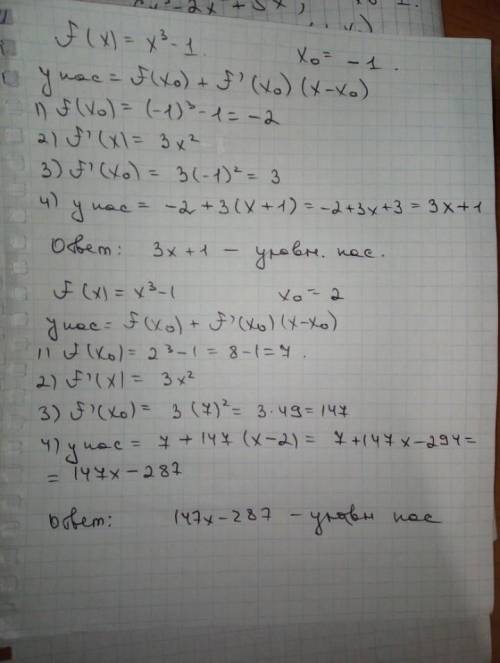 f(x) = x³-1. x₀ = -1.
y кас = f(x₀) + f'(x₀)(x-x₀)
1) f(x₀) = (-1)³-1 = -2
2) f'(x) = 3x²
3) f'(x₀) = 3(-1)² = 3
4) y кас = -2 + 3(x+1) = -2+3x+3 = 3x+1
Ответ: 3x+1 - уравн. кас.
f(x) = x³-1 x₀ = 2
y кас = f(x₀) + f'(x₀)(x-x₀)
1) f(x₀) = 2³-1 = 8-1 = 7.
2) f'(x) = 3x²
3) f'(x₀) = 3(7)² = 3·49 = 147
4) y кас = 7 + 147(x-2) = 7+147x-294 =
= 147x-287
Ответ: 147x-287 - уравн кас